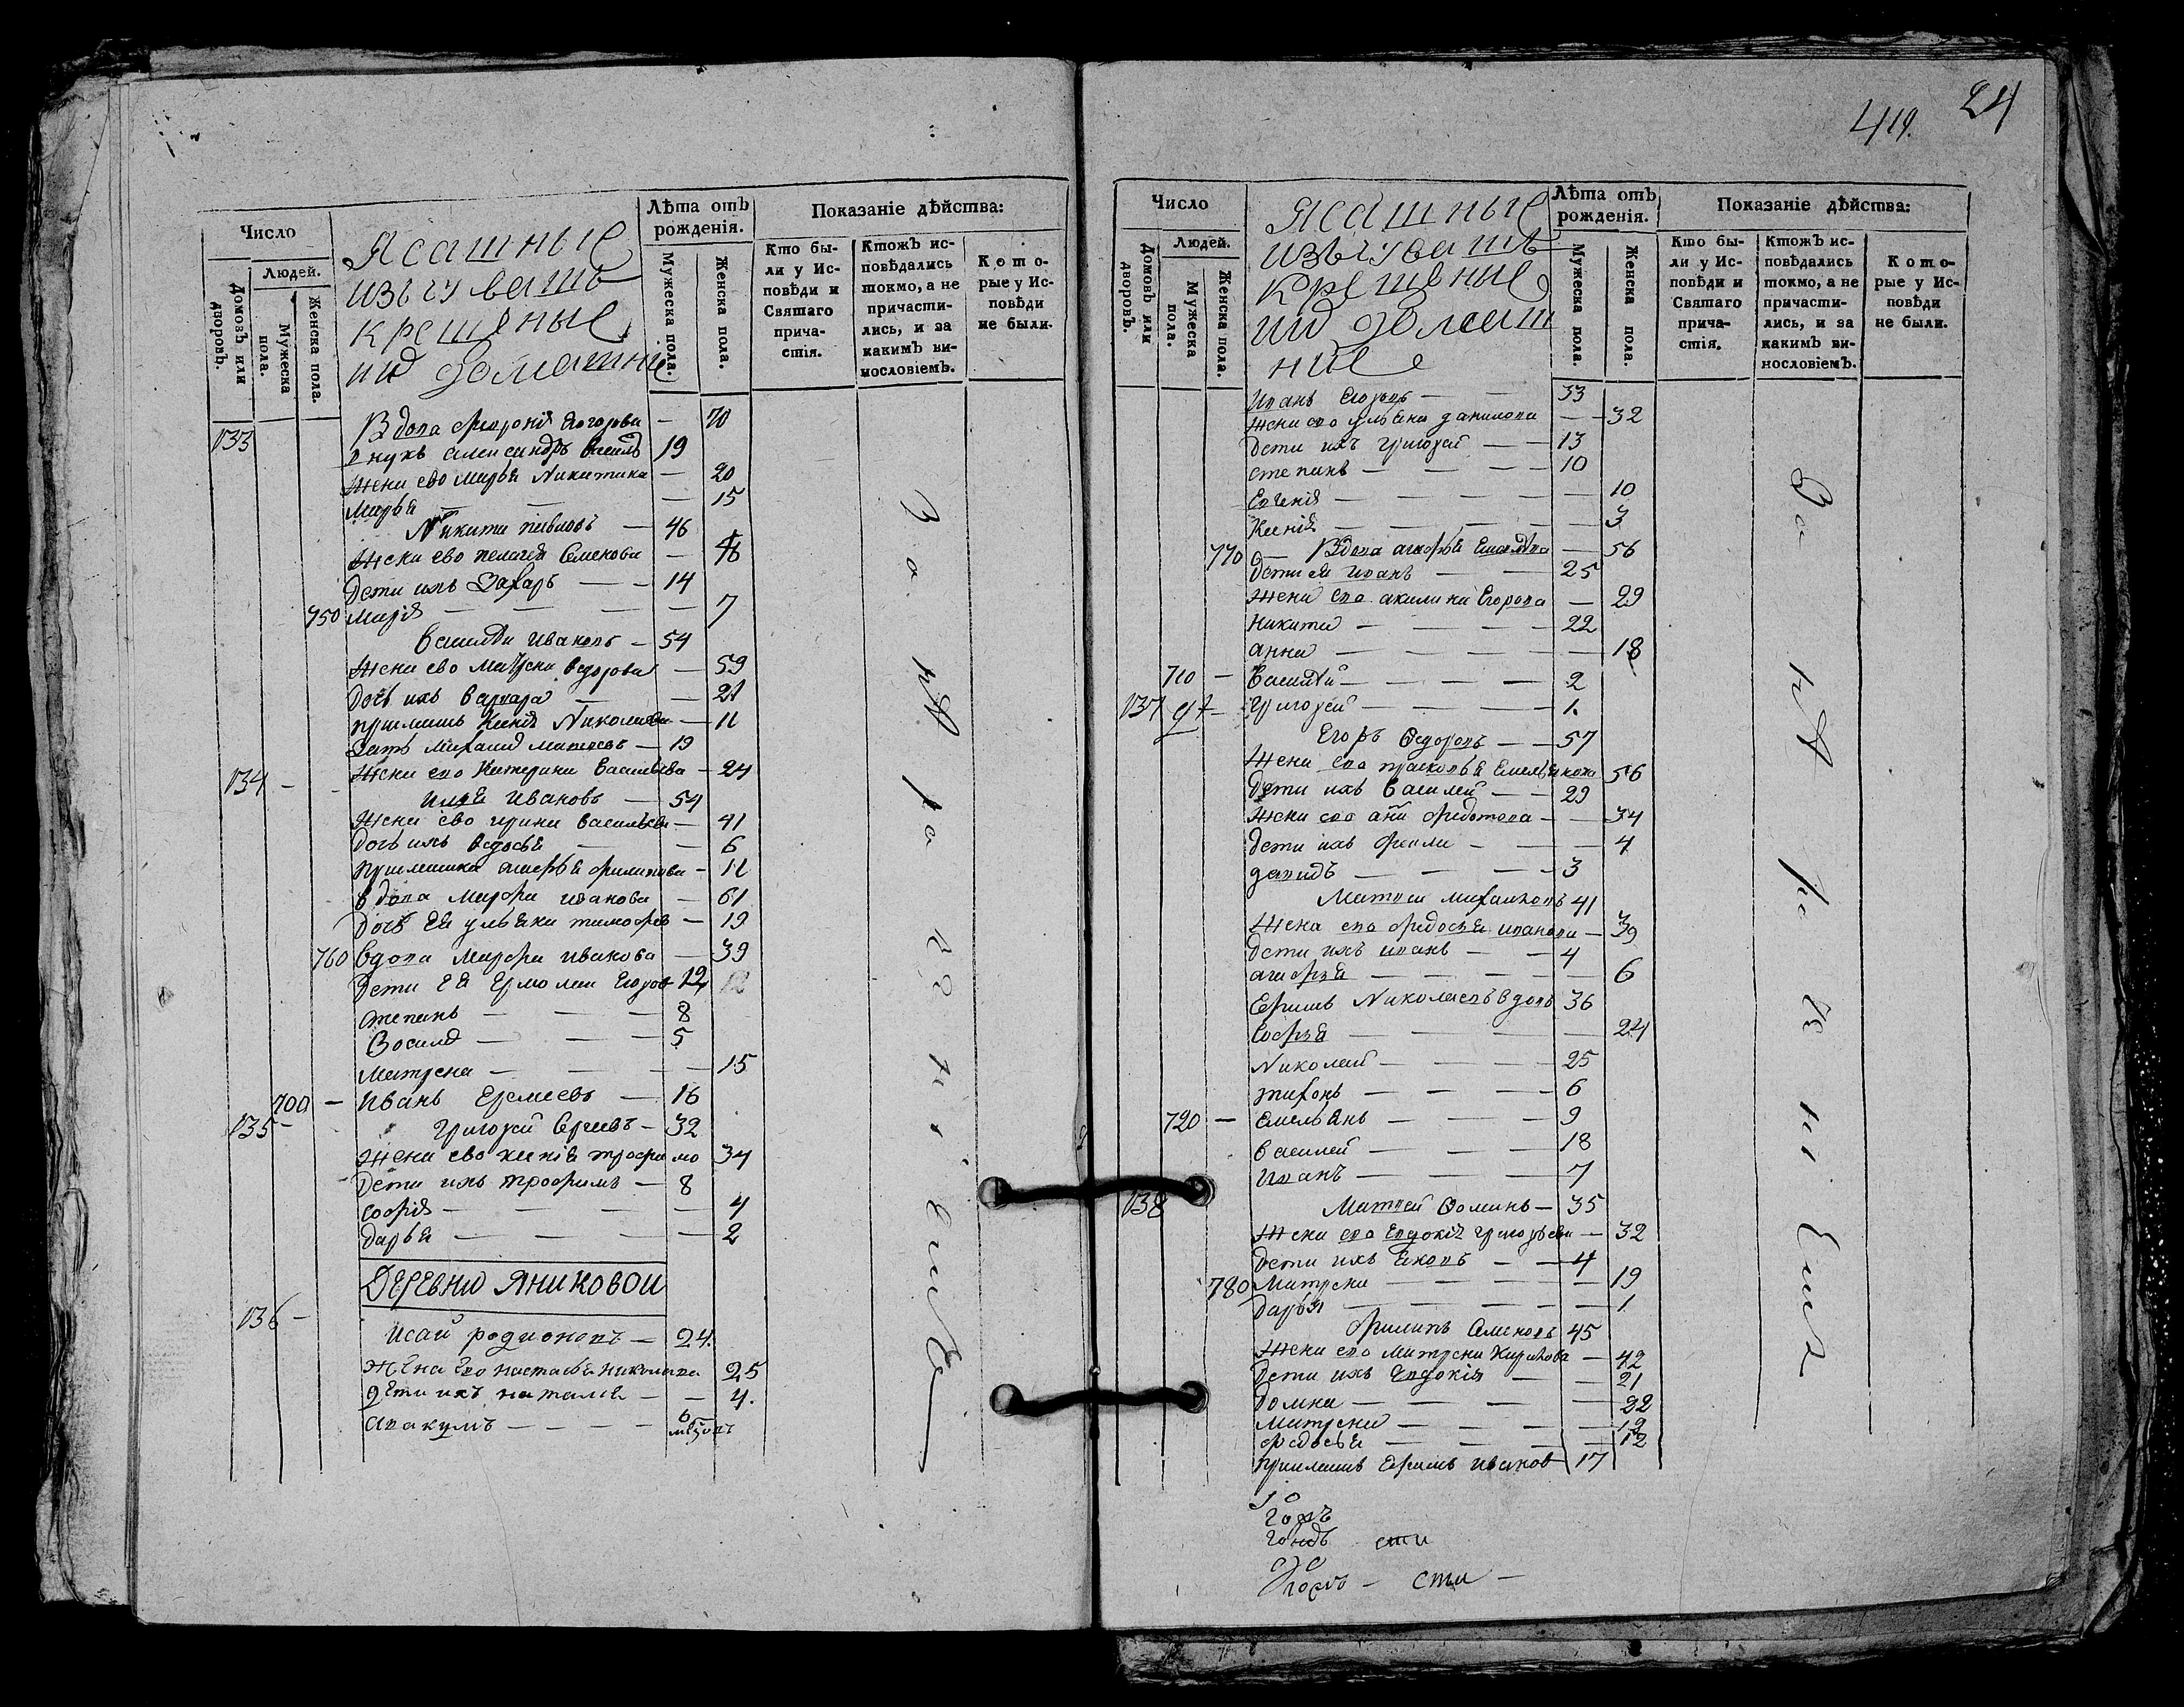 Число
Людей.
Домовъ или дворовъ.
Мужеска пола.
Женска пола.
Ясашные
изъ чувашъ
крещеные
и домашние
Лѣта отъ рожденія.
Мужеска пола.
Женска пола.
Показаніе дѣйства:
Кто бы-
ли у Ис-
повѣди и
Святаго
прича-
стія.
Ктожъ ис-
повѣдались
токмо, а не
причасти-
лись, и за
какимъ ви-
нословіемъ.
Кото-
рые у Ис-
повѣди
не были.
133 Вдова — 70
внукъ александръ 19
жена ево марья Никитина — 20
марья — 15
Никита павловъ — 46
Жена ево пелагея Семенова —
Дети ихъ Захаръ — 14
750 мария — 7
Василеи Ивановъ — 54
Жена ево матрена ѳедорова — 59
дочь ихъ варвара — 21
Николаева — 11
зять михаила матвеевъ — 19
Жена ево Катерина Васильева — 24
134 — Илья Ивановъ — 54
Жена ево ирина васильева — 41
дочь ихъ ѳедосья — 6
филипова — 11
вдова марфа иванова — 61
дочь ея ульяна тимофев — 19
760 вдова марфа иванова — 39
Дети ея Ермолаи Егоров 12
степанъ — 8
Василе — 5
матрена — 15
700 — Иванъ Еремеевъ — 16
135 — Григорей Сергеевъ — 32
жена ево ксения трофимо 34
Дети ихъ трофимъ — 8
софия — 4
дарья — 2
Деревни Яниковои
136 — Исаи родионовъ — 24.
жена ево настасья николаева 25
дети ихъ наталья — 4.
авакумъ — 6 месяцовъ
За нерадениемъ
419. 24
Число
Людей.
Домовъ или дворовъ.
Мужеска пола.
Женска пола.
Ясашные
изъ чувашъ
крещеные
и домашние
Лѣта отъ рожденія.
Мужеска пола.
Женска пола.
Показаніе дѣйства:
Кто бы-
ли у Ис-
повѣди и
Святаго
прича-
стія.
Ктожъ ис-
повѣдались
токмо, а не
причасти-
лись, и за
какимъ ви-
нословіемъ.
Кото-
рые у Ис-
повѣди
не были.
Иванъ Егоровъ — 33
жена ево ульяна данилова — 32
дети ихъ григореи — 13
степанъ — 10
Евгения — 10
Ксения — 3
770 — Вдова агафья — 56
Дети ея иванъ — 25
жена ево акилина Егорова — 29
никита — 22
анна — 18
710 — Василеи — 2
137 Григореи — 1.
Егоръ Ѳедоровъ — 57
жена ево прасковья емельянова 56
Дети ихъ василеи — 29
жена ево анна федотова — 34
дети ихъ фекла — 4
давидъ — 3
Матвеи михаиловъ 41
Жена ево федосья иванова — 39
дети ихъ иванъ — 4
агафья — 6
Ефимъ Николаевъ вдовъ 36
Софья — 24
Николаи — 25
тихонъ — 6
720 — Емельянъ — 9
василеи — 18
Иванъ — 7
138 Матвеи Ѳоминъ — 35
Жена ево Евдокия григорьева — 32
дети ихъ яковъ — 4
780 Матрена — 19
дарья — 1
Филипъ Семеновъ 45
Жена ево матрена — 42
дети ихъ Евдокия — 21
домна — 22
матрена — 12
федосья — 12
Ефимъ Иванов 17
За нерадениемъ